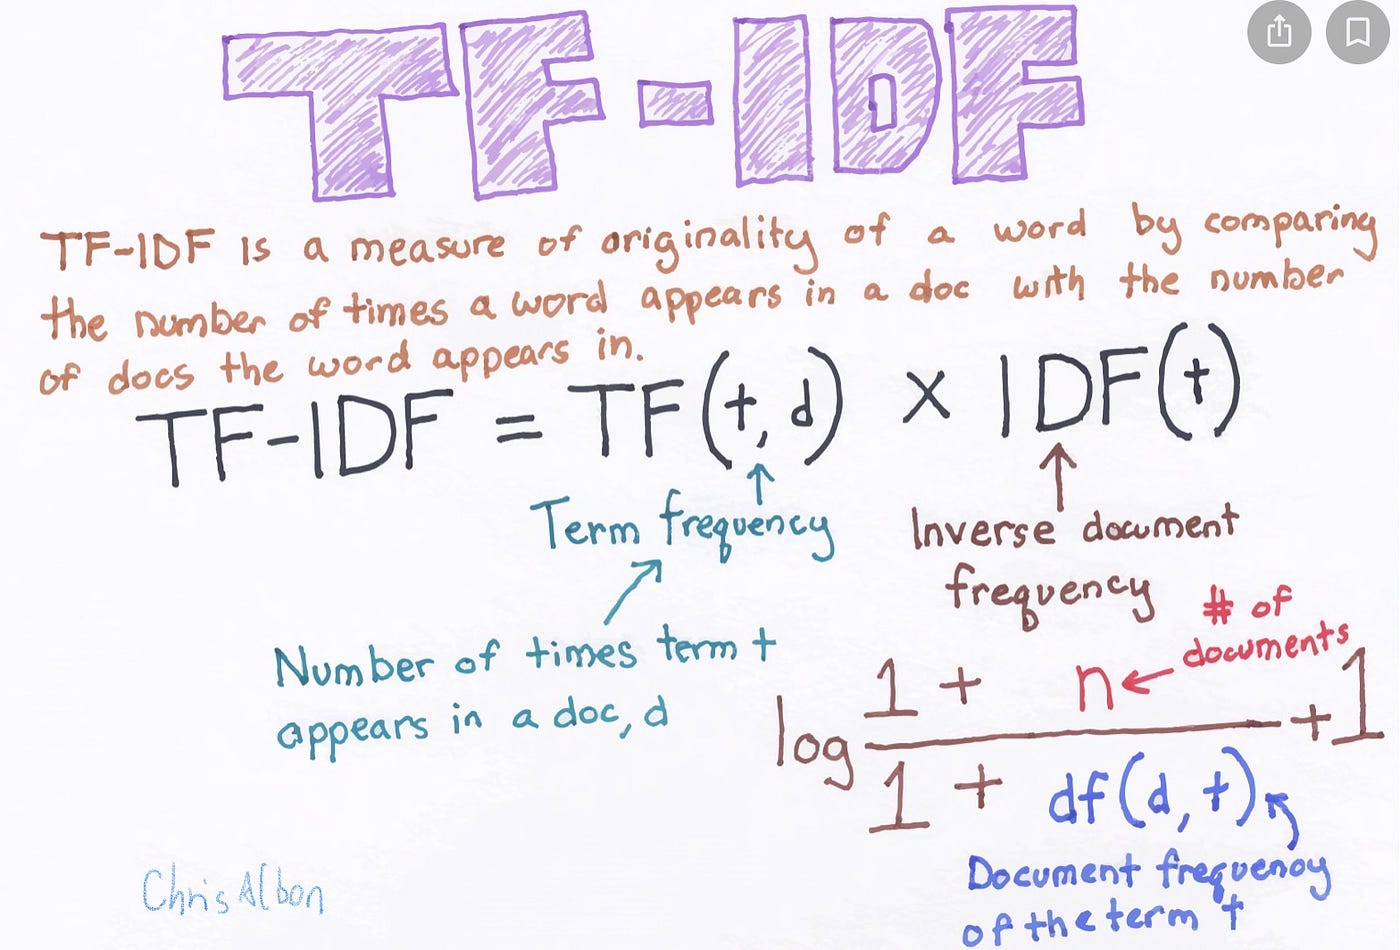 TF-IDF
TF-IDF is a measure of originality of a word by comparing
the number of times a word appears in a doc with the number
of docs the word appears in.
TF-IDF = TF(t, d) × IDF(t)
Term frequency
Inverse document
frequency
Number of times term t
appears in a doc, d
# of
documents
1 + n
log +1
1 + df(d, t)
Document frequency
of the term t
Chris Albon